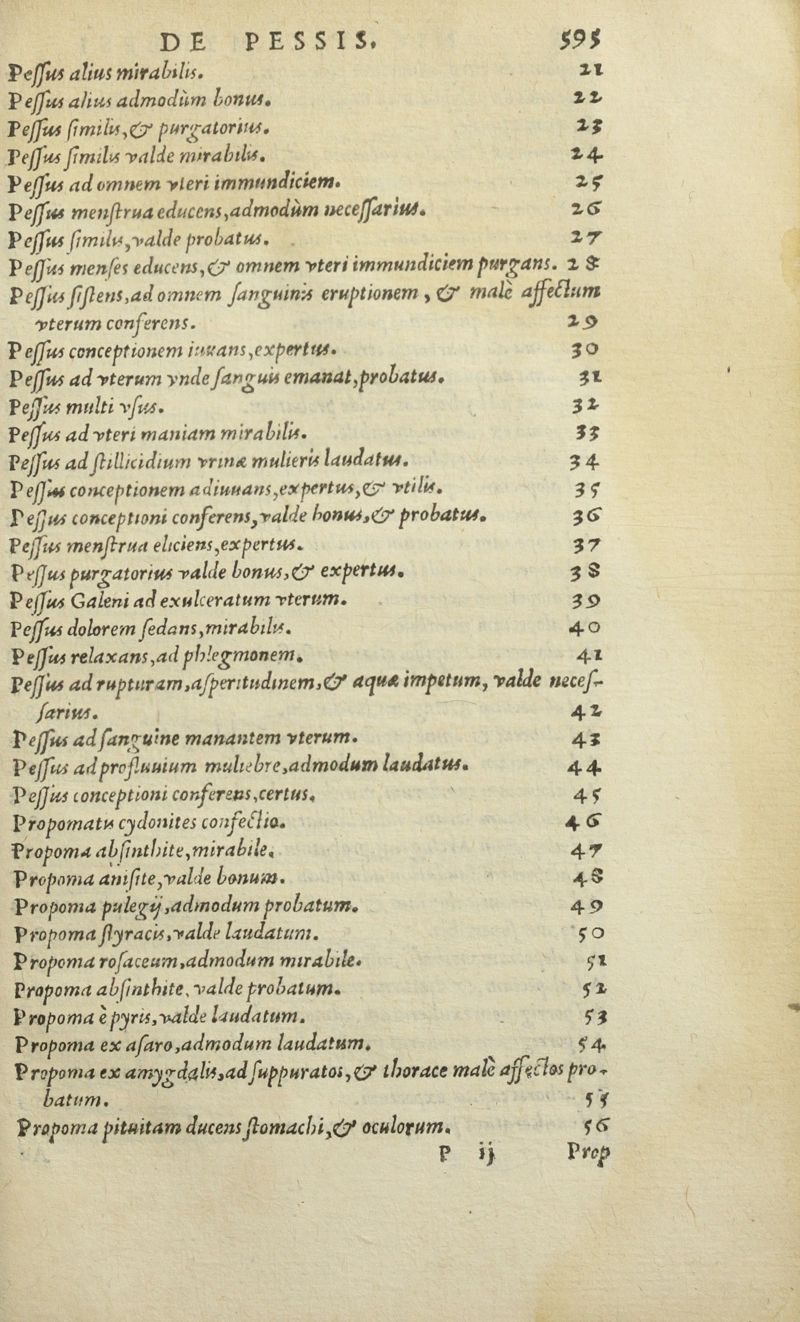 DE PESSIS. 595
Pessus alius mirabilis. 21
Pessus alius admodùm bonus. 22
Pessus similis,& purgatorius. 23
Pessus similis valde mirabilis. 24
Pessus ad omnem vteri immundiciem. 25
Pessus menstrua educens,admodùm necessarius. 26
Pessus similis,valde probatus. 27
Pessus menses educens,& omnem vteri immundiciem purgans. 28
Pessus sistens,ad omnem sanguinis eruptionem , & malè affectum
vterum conferens. 29
Pessus conceptionem iuuans,expertus. 30
Pessus ad vterum vnde sanguis emanat,probatus. 31
Pessus multi vsus. 32
Pessus ad vteri maniam mirabilis. 33
Pessus ad stillicidium vrinæ mulieris laudatus. 34
Pessus conceptionem adiuuans,expertus,& vtilis. 35
Pessus conceptioni conferens,valde bonus,& probatus. 36
Pessus menstrua eliciens,expertus. 37
Pessus purgatorius valde bonus,& expertus. 38
Pessus Galeni ad exulceratum vterum. 39
Pessus dolorem sedans,mirabilis. 40
Pessus relaxans,ad phlegmonem. 41
Pessus ad rupturam,asperitudinem,& aquæ impetum, valde neces-
sarius. 42
Pessus ad sanguine manantem vterum. 43
Pessus ad profluuium muliebre,admodum laudatus. 44
Pessus conceptioni conferens,certus. 45
Propomatis cydonites confectio. 46
Propoma absinthite,mirabile. 47
Propoma anisite,valde bonum. 48
Propoma pulegij,admodum probatum. 49
Propoma styracis,valde laudatum. 50
Propoma rosaceum,admodum mirabile. 51
Propoma absinthite, valde probatum. 52
Propoma è pyris,valde laudatum. 53
Propoma ex asaro,admodum laudatum. 54
Propoma ex amygdalis,ad suppuratos,& thorace malè affectos pro-
batum. 55
Propoma pituitam ducens stomachi,& oculorum. 56
P ij Prop